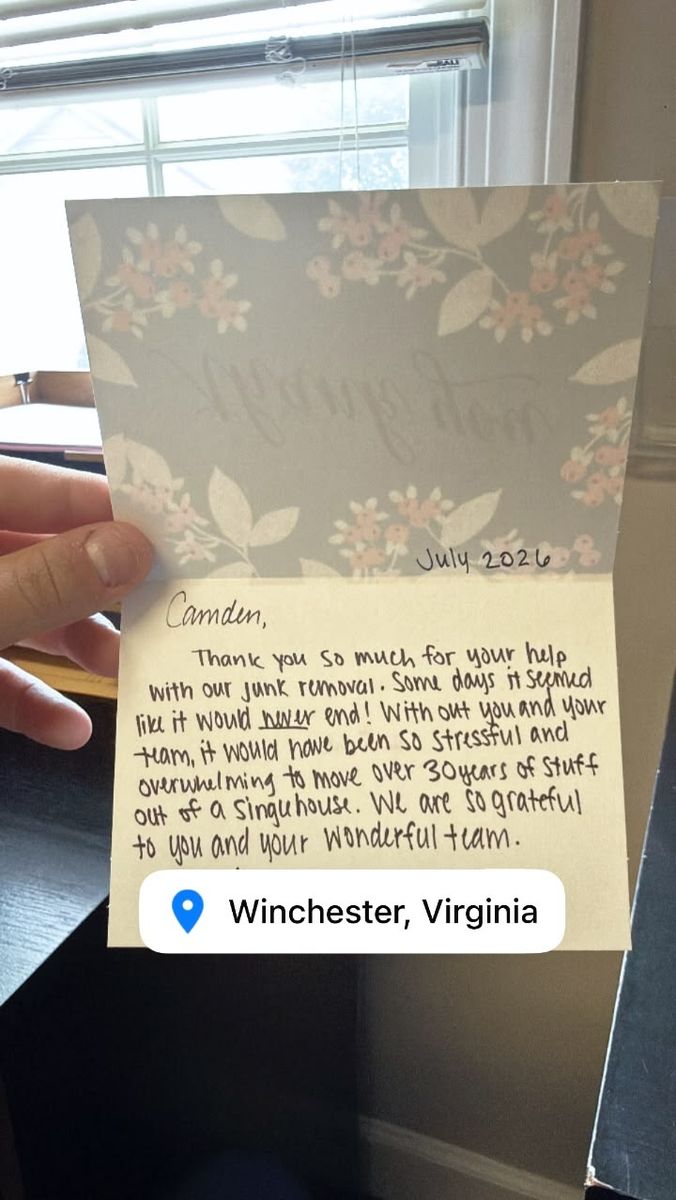 thank you
July 2026
Camden,
Thank you so much for your help
with our junk removal. Some days it seemed
like it would never end! With out you and your
team, it would have been so stressful and
overwhelming to move over 30 years of stuff
out of a single house. We are so grateful
to you and your wonderful team.
Winchester, Virginia